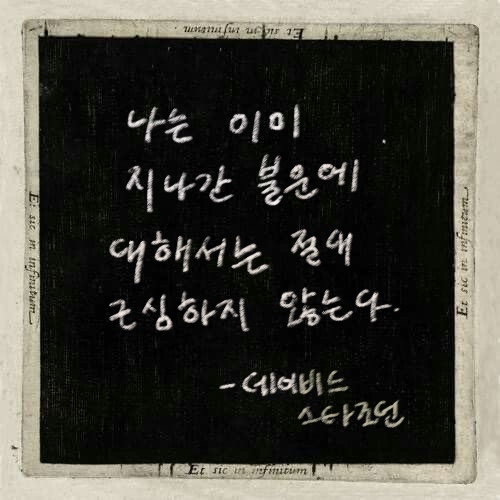 Et sic in infinitum
나는 이미
지나간 불운에
대해서는 절대
근심하지 않는다.
-데이비드
스타조던
Et sic in infinitum
Et sic in infinitum
Et sic in infinitum